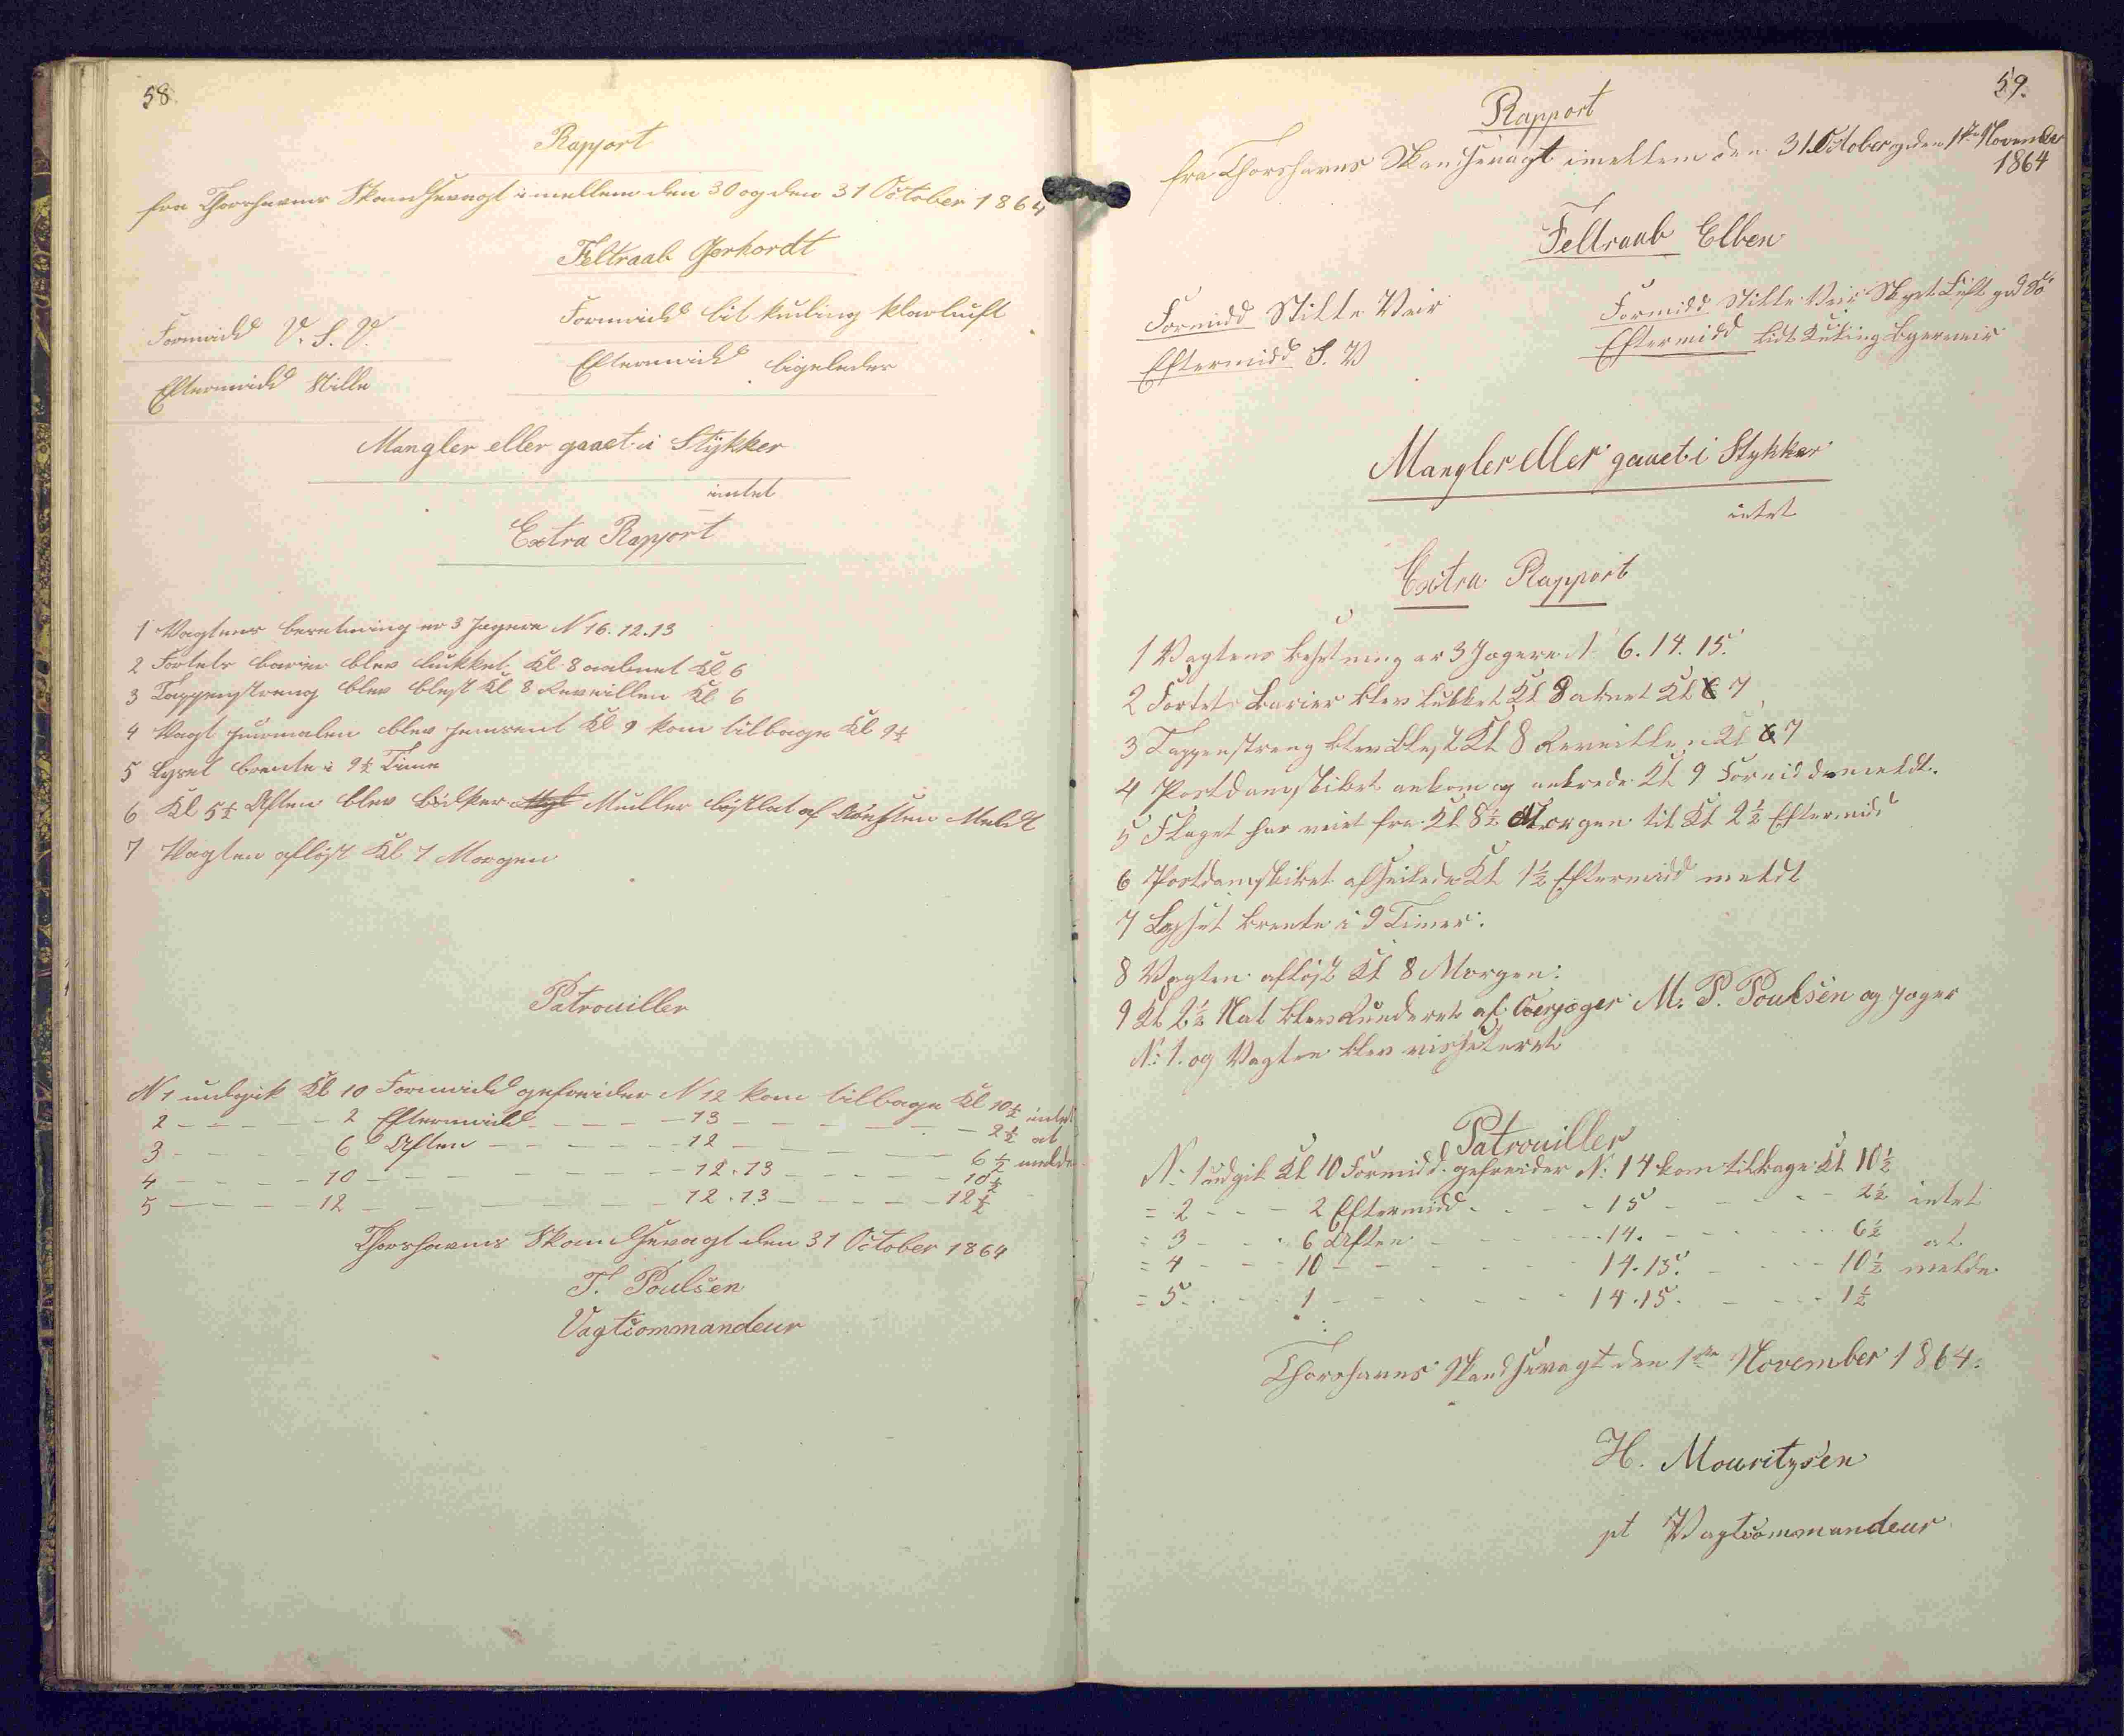 58.
Rapport
fra Thorshavns Skandsevagt imellem den 30 og den 31 October 1864
Feltraab Gerhardt
Formidd V. S. V.
Formidd lit kuling klarluft
Eftermidd Stille
Eftermidd ligeledes
Mangler eller gaaet i Stykker
intet
Extra Rapport
1 Vagtens besetning er 3 Jægere N 16. 12. 13
2 Fortets barier blev lukket Kl 8 aabnet Kl 6
3 Tappenstreng blev blest Kl 8 Reveillen Kl 6
4 Vagt jurnalen blev hemsent Kl 9 kom tilbage Kl 9½
5 Lyset brente i 9½ Time
6 Kl 5½ Aften blev Müller løslat af Meldt
7 Vagten afløst Kl 7 Morgen
Patrouiller
N 1 udgik Kl 10 Formidd gefreider N 12 kom tilbage Kl 10½ intet
2 — — — — 2 Eftermidd — — 13 — — — — — 2½ at
3 — — — — 6 Aften — — — — 12 — — — — — 6½ melde
4 — — — — 10 — — — — — 12. 13 — — — — — 10½
5 — — — — 12 — — — — — 12. 13 — — — — — 12½
Thorshavns Skandsevagt den 31 October 1864
T. Poulsen
Vagtcommandeur
59.
Rapport
fra Thorshavns Skandsevagt imellem den 31 October og den 1ste November
1864
Feltraab Elben
Formidd Stille Veir
Formidd Stille Veir Skyet Luft god Sø
Eftermidd S. V
Eftermidd lidt Kuling Byerveir
Mangler eller gaaet i Stykker
intet
Extra Rapport
1 Vagtens besetning er 3 Jægere N 6. 14. 15.
2 Fortets Barier blev lukket Kl 8 abnet Kl 7
3 Tappenstreng blev blest Kl 8 Reveillen Kl 7
4 Postdampskibet ankom og ankrede Kl 9 Formidd meldt.
5 Flaget har veiet fra Kl 8½ Morgen til Kl 2½ Eftermidd
6 Postdampskibet afseilede Kl 1½ Eftermidd meldt
7 Lyset brente i 9 Timer.
8 Vagten afløst Kl 8 Morgen:
9 Kl 2½ Nat blev Runderet af Overjæger M. P. Poulsen og Jæger
N: 1. og Vagten blev visiteret
Patrouiller
N: 1 udgik Kl 10 Formidd. gefreider N: 14 kom tilbage Kl 10½
= 2 - - - 2 Eftermidd - - - 15 - - - - 2½ intet
= 3 - - - 6 Aften - - - - 14. - - - - 6½ at
= 4 - - - 10 - - - - - 14. 15. - - - - 10½ melde
= 5. - - - 1 - - - - - 14. 15. - - - - 1½
Thorshavns Skandsevagt den 1ste November 1864.
H. Mouritzsen
pt Vagtcommandeur